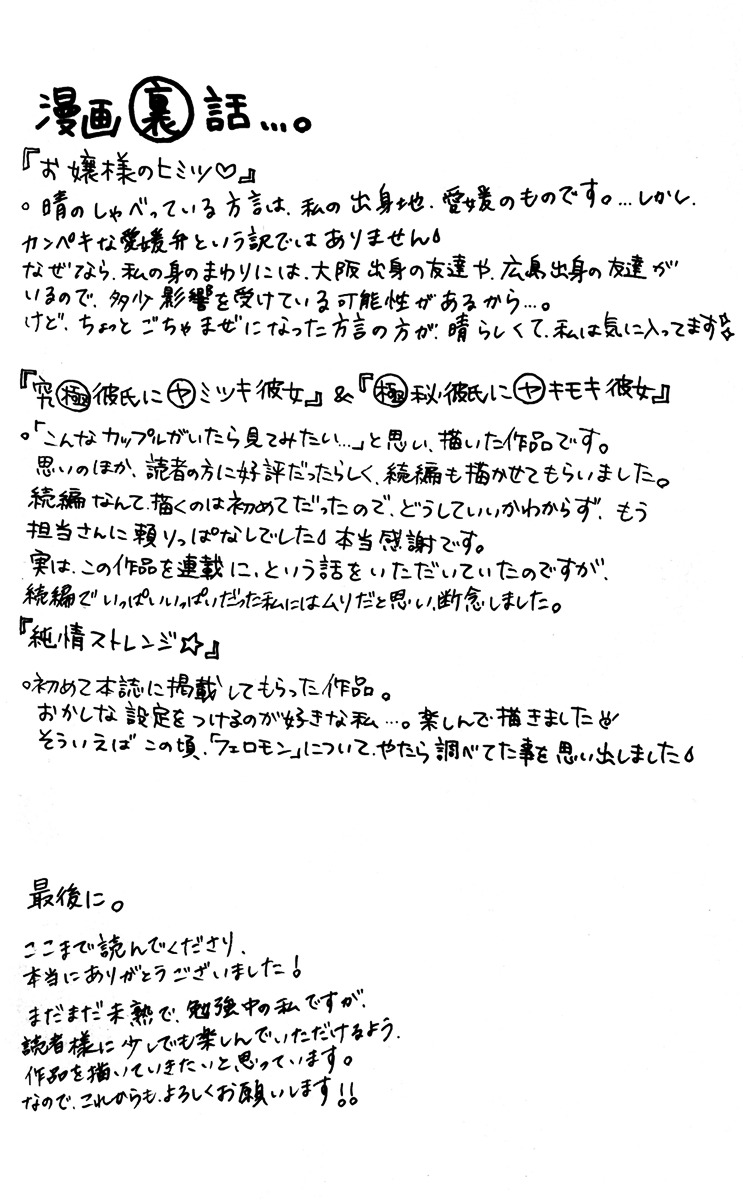 漫画㊙裏話…。
『お嬢様のヒミツ♡』
。晴のしゃべっている方言は、私の出身地、愛媛のものです。…しかし、
カンペキな愛媛弁という訳ではありません
なぜなら、私の身のまわりには、大阪出身の友達や、広島出身の友達が
いるので、多少影響を受けている可能性があるから…。
けど、ちょっとごちゃまぜになった方言の方が、晴らしくて、私は気に入ってます☆
『究極彼氏にヤミツキ彼女』&『極秘彼氏にヤキモキ彼女』
。「こんなカップルがいたら見てみたい…」と思い、描いた作品です。
思いのほか、読者の方に好評だったらしく、続編も描かせてもらいました。
続編なんて、描くのは初めてだったので、どうしていいかわからず、もう
担当さんに頼りっぱなしでした 本当感謝です。
実は、この作品を連載に、という話をいただいていたのですが、
続編でいっぱいいっぱいだった私にはムリだと思い、断念しました。
『純情ストレンジ☆』
。初めて本誌に掲載してもらった作品。
おかしな設定をつけるのが好きな私…。楽しんで描きました
そういえばこの頃、「フェロモン」について、やたら調べてた事を思い出しました
最後に。
ここまで読んでくださり、
本当にありがとうございました!
まだまだ未熟で、勉強中の私ですが、
読者様に少しでも楽しんでいただけるよう、
作品を描いていきたいと思っています。
なので、これからも、よろしくお願いします!!